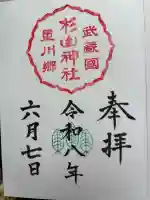 奉拝
武蔵國
杉山神社
星川郷
令和八年
六月七日